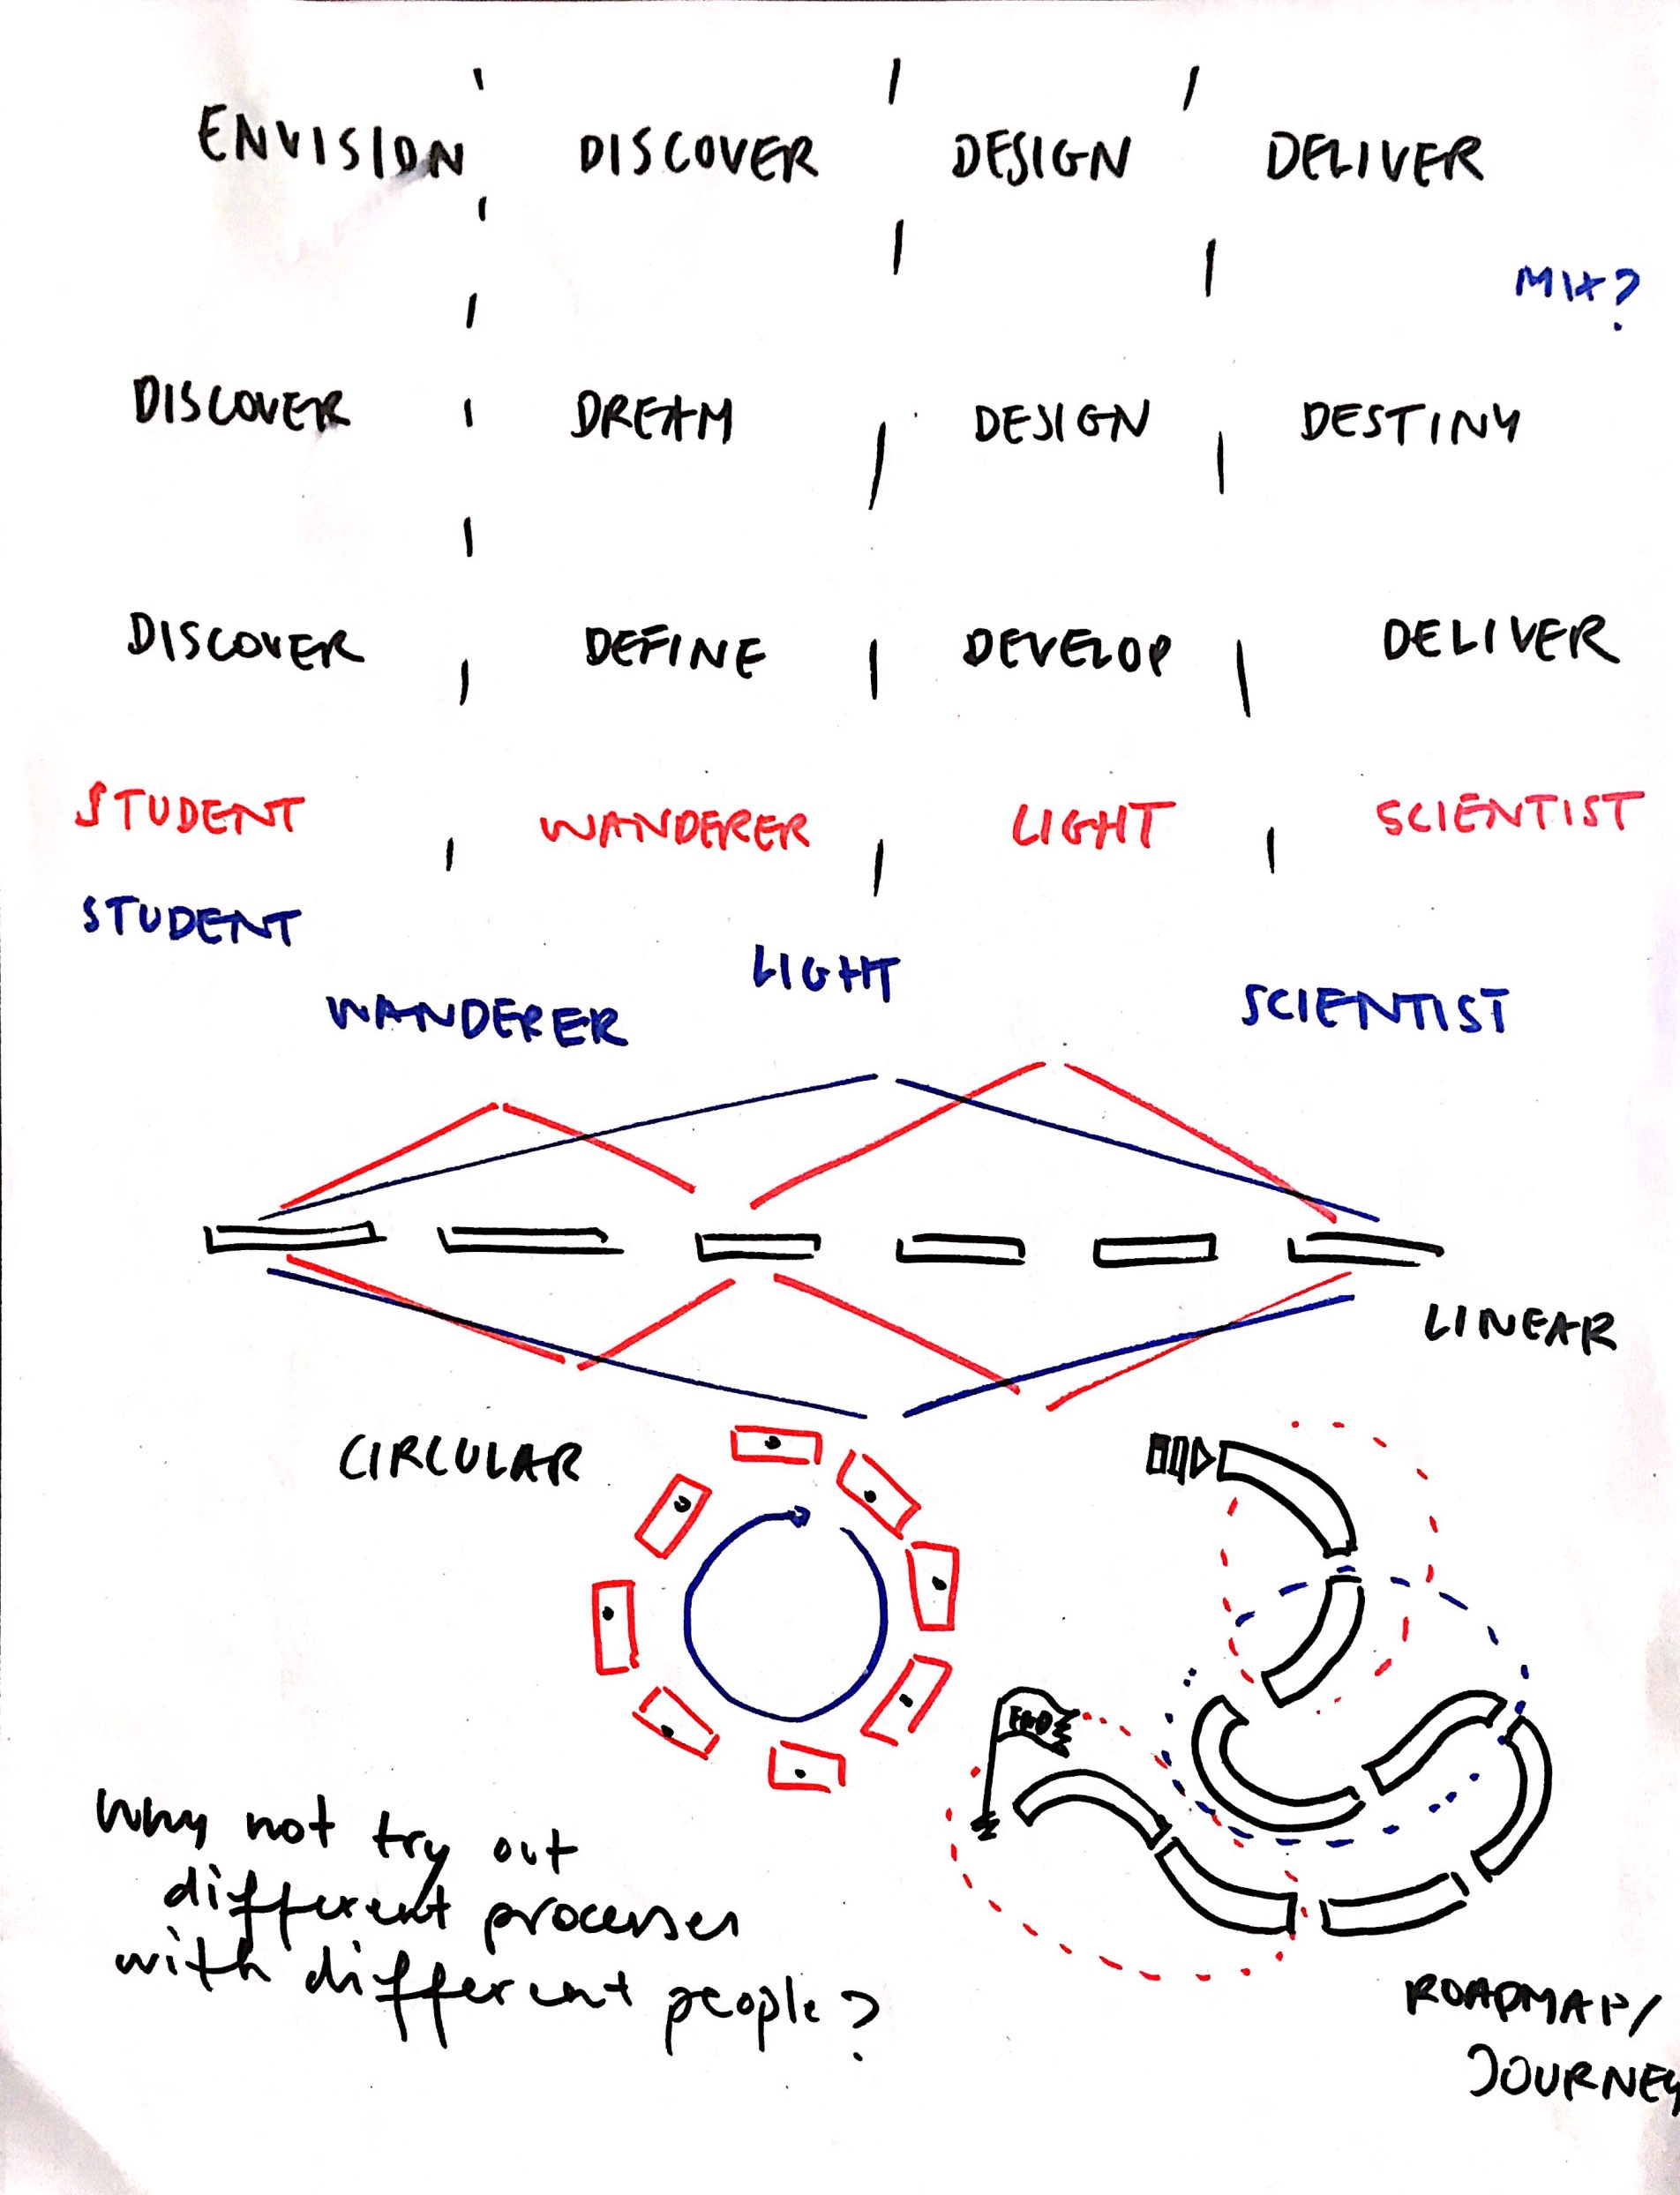 ENVISION DISCOVER DESIGN DELIVER
MIX?
DISCOVER DREAM DESIGN DESTINY
DISCOVER DEFINE DEVELOP DELIVER
STUDENT WANDERER LIGHT SCIENTIST
STUDENT
LIGHT
WANDERER SCIENTIST
LINEAR
CIRCULAR
END
Why not try out
different processes
with different people?
ROADMAP/
JOURNEY